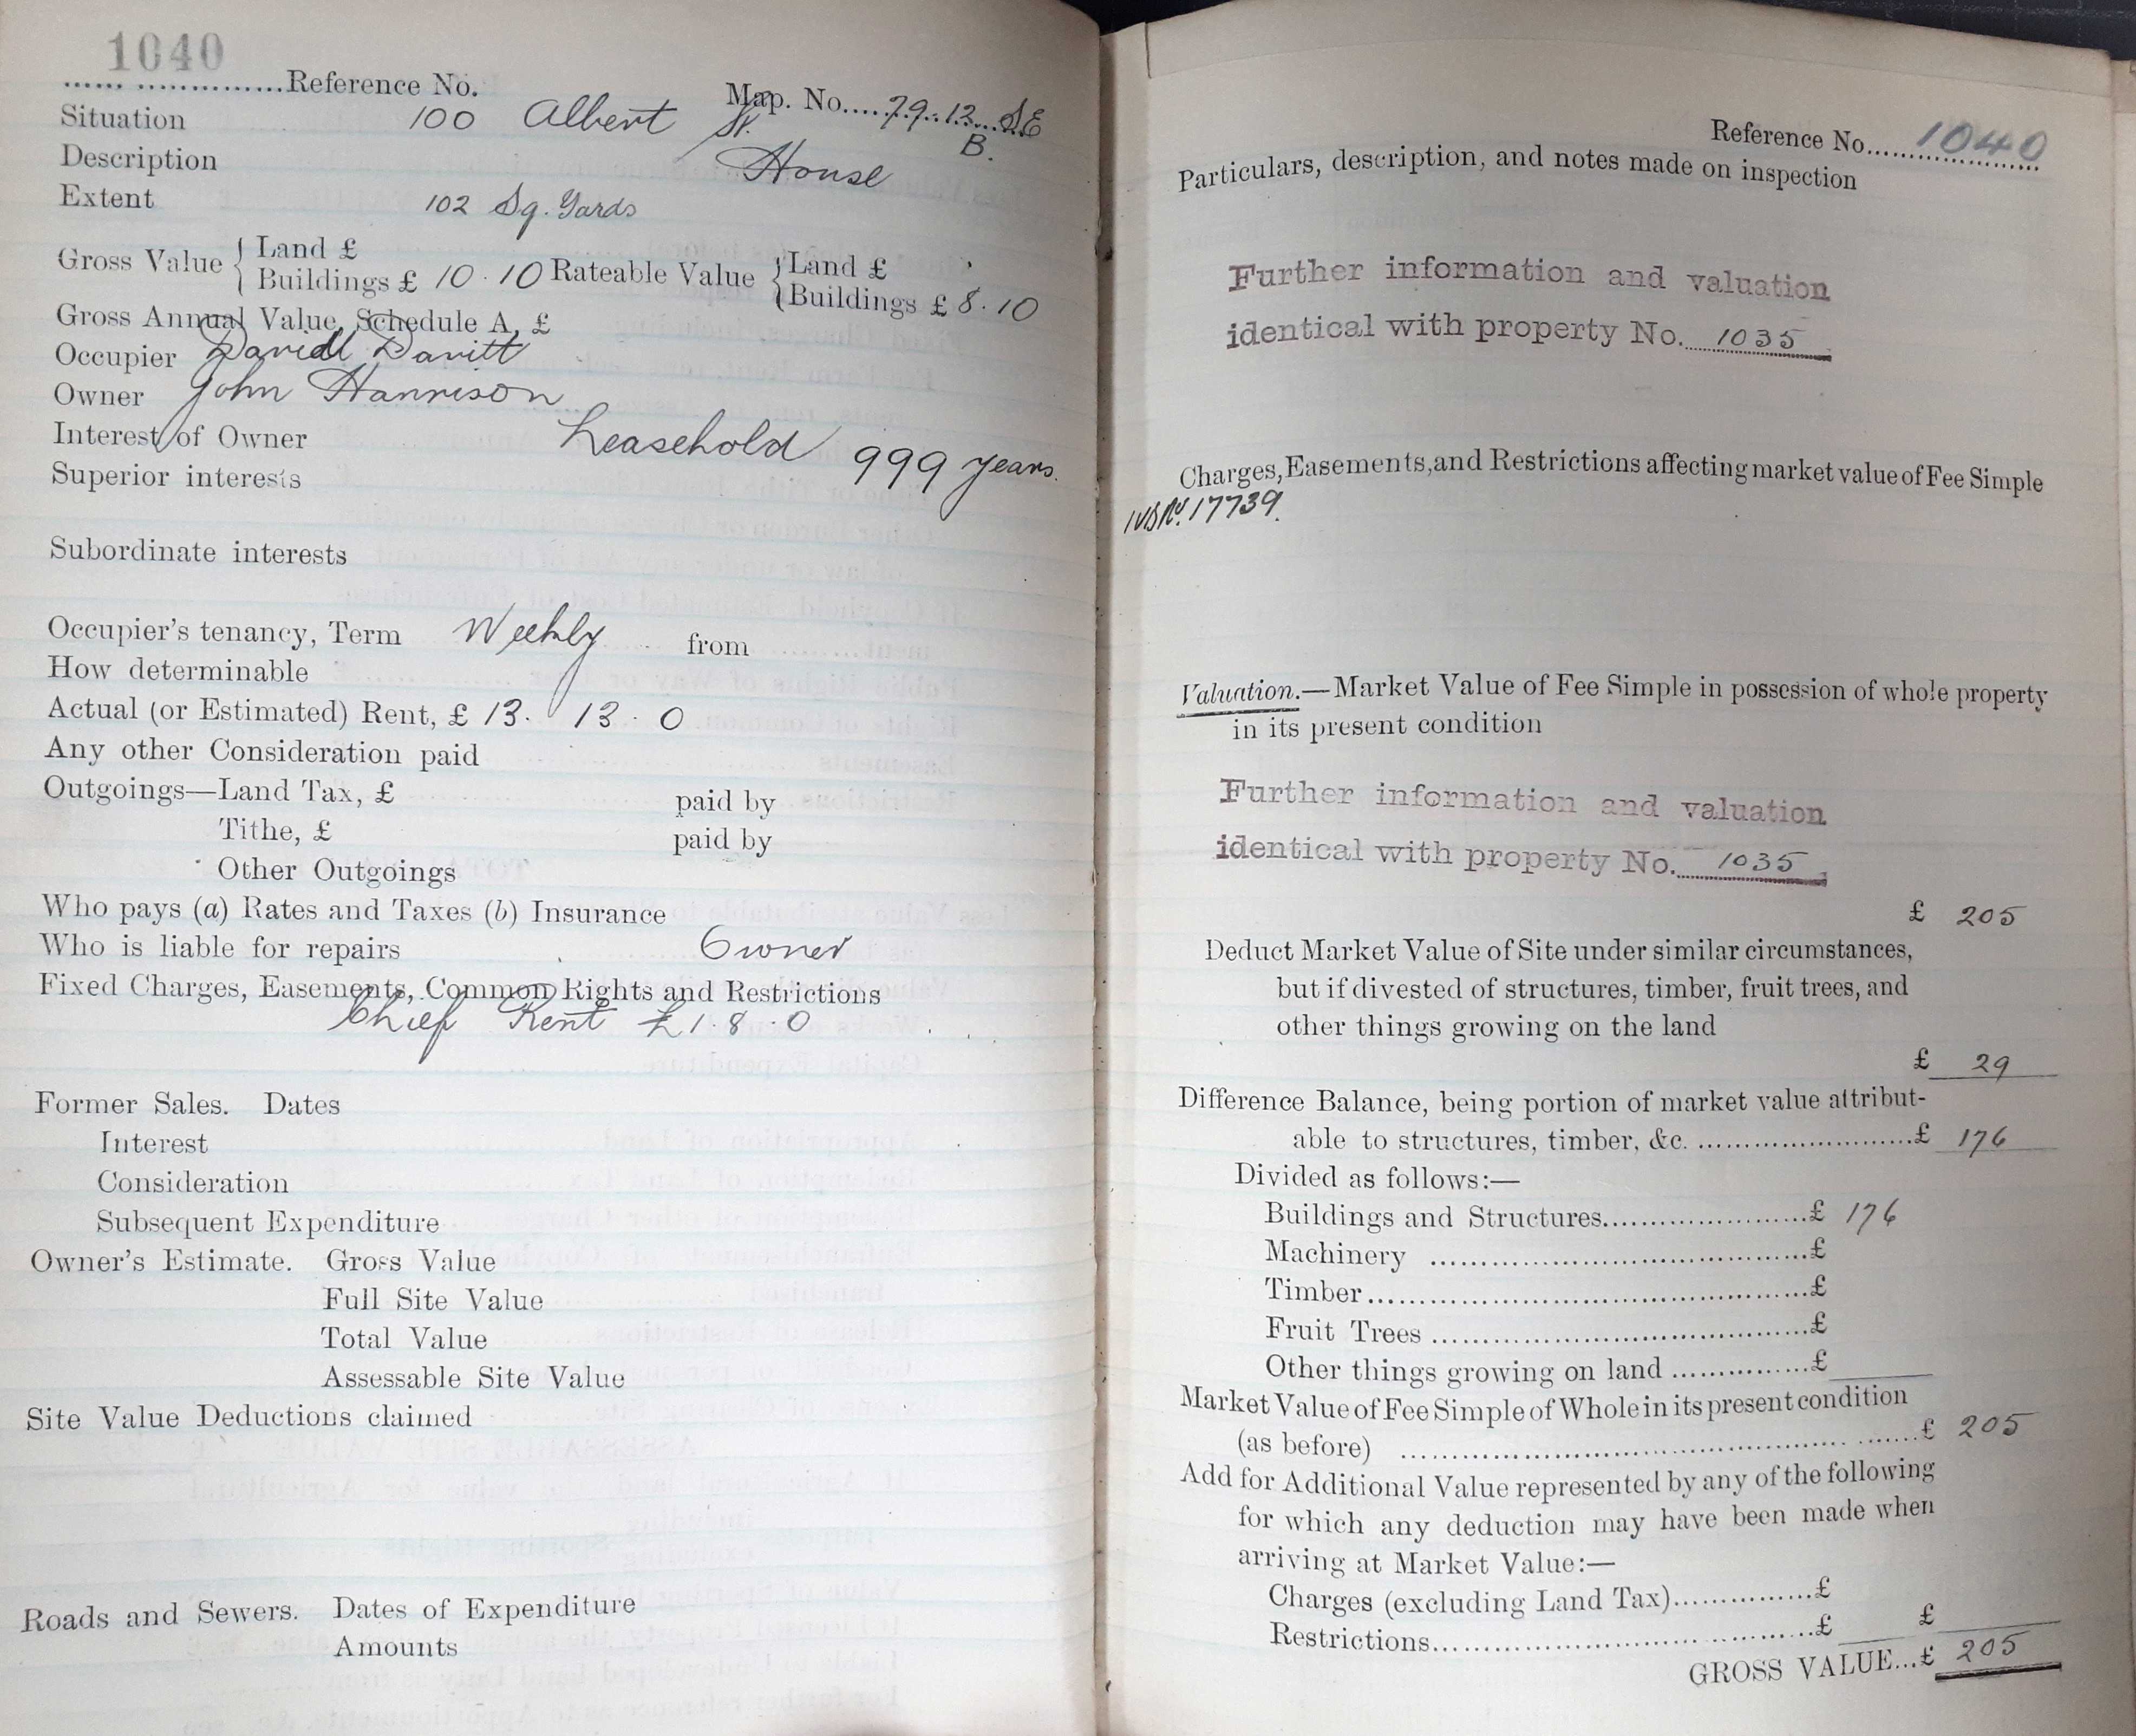 1040
...... ..............Reference No.
Map. No....79..12...SE
B.
Situation 100 Albert St.
Description House
Extent 102 Sq. Yards
Gross Value { Land £
Buildings £ 10 . 10 Rateable Value { Land £
Buildings £ 8 . 10
Gross Annual Value, Schedule A, £
Occupier David Davitt
Owner John Harrison
Interest of Owner Leasehold 999 years.
Superior interests
Subordinate interests
Occupier's tenancy, Term Weekly from
How determinable
Actual (or Estimated) Rent, £ 13 . 13 . 0
Any other Consideration paid
Outgoings—Land Tax, £ paid by
Tithe, £ paid by
Other Outgoings
Who pays (a) Rates and Taxes (b) Insurance
Who is liable for repairs Owner
Fixed Charges, Easements, Common Rights and Restrictions
Chief Rent £1 . 8 . 0
Former Sales. Dates
Interest
Consideration
Subsequent Expenditure
Owner's Estimate. Gross Value
Full Site Value
Total Value
Assessable Site Value
Site Value Deductions claimed
Roads and Sewers. Dates of Expenditure
Amounts
Reference No. 1040
Particulars, description, and notes made on inspection
Further information and valuation
identical with property No. 1035
Charges, Easements, and Restrictions affecting market value of Fee Simple
17739.
Valuation.—Market Value of Fee Simple in possession of whole property
in its present condition
Further information and valuation
identical with property No. 1035
£ 205
Deduct Market Value of Site under similar circumstances,
but if divested of structures, timber, fruit trees, and
other things growing on the land
£ 29
Difference Balance, being portion of market value attribut-
able to structures, timber, &c. ........................£ 176
Divided as follows:—
Buildings and Structures.......................£ 176
Machinery ............................................£
Timber....................................................£
Fruit Trees ............................................£
Other things growing on land ...............£
Market Value of Fee Simple of Whole in its present condition
(as before) ..........................................................£ 205
Add for Additional Value represented by any of the following
for which any deduction may have been made when
arriving at Market Value:—
Charges (excluding Land Tax)...............£
Restrictions..........................................£ £
GROSS VALUE...£ 205